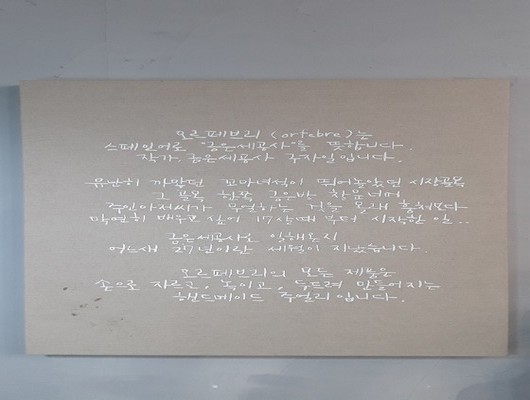 오르페브리 (orfebre)는
스페인어로 "금은세공사"를 뜻합니다.
작가. 금은세공사 구자일입니다.
유난히 까맣던 꼬마녀석이 뛰어놀았던 시장골목
그 골목 한쪽 금은방 창문너머
주인아저씨가 무얼하는 건을 몰래 훔쳐보다
막연히 배우고 싶어 17살때 부터 시작한 일..
금은세공사로 일해온지
어느새 27년이란 세월이 지났습니다.
오르페브리의 모든 제품은
손으로 자르고, 녹이고, 두드려 만들어지는
핸드메이드 주얼리입니다.